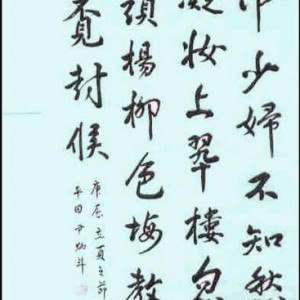 中少婦不知愁
凝妝上翠樓忽
頭楊柳色悔教
覓封候
庚辰立夏之節
平田